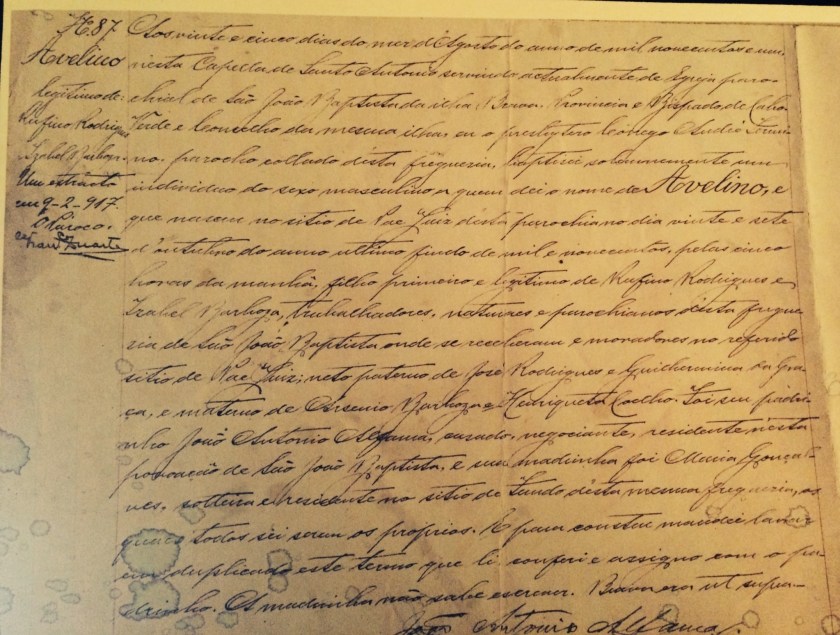 N. 87
Avelino
legitimo de
Rufino Rodrigues
Izabel Barboza
Um extracto
em 9-2-917.
O Paroco,
Duarte
Aos vinte e cinco dias do mez d'Agosto do anno de mil novecentos e um
nesta Capella de Santo Antonio servindo actualmente de Egreja paro-
chial de São João Baptista da ilha Brava, Provincia e Bispado de Cabo
Verde e Concelho da mesma ilha, eu o presbytero Conego André Firmi-
no, parocho collado desta freguezia, baptisei solemnemente um
individuo do sexo masculino a quem dei o nome de Avelino, e
que nasceu no sitio de Pae Luiz desta parochia no dia vinte e sete
d'outubro do anno ultimo findo de mil e novecentos, pelas cinco
horas da manhã, filho primeiro e legitimo de Rufino Rodrigues e
Izabel Barboza, trabalhadores, naturaes e parochianos desta fregue-
zia de São João Baptista onde se receberam e moradores no referido
sitio de Pae Luiz; neto paterno de José Rodrigues e Guilhermina da Gra-
ça, e materno de Arsenio Barboza e Henriqueta Coelho. Foi seu padri-
nho João Antonio Alfama, casado, negociante, residente nesta
povoação de São João Baptista, e sua madrinha foi Maria Gonçal-
ves, solteira e residente no sitio de Fundo desta mesma freguezia, os
quaes todos sei serem os proprios. E para constar mandei lavrar
em duplicado este termo que li, conferi e assigno com o pa-
drinho. A madrinha não sabe escrever. Brava era ut supra-
João Antonio Alfama